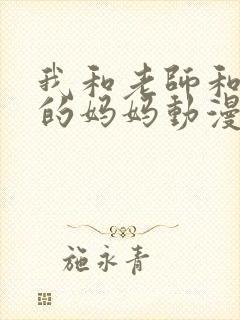 我和老師和
的妈妈動漫
施永青